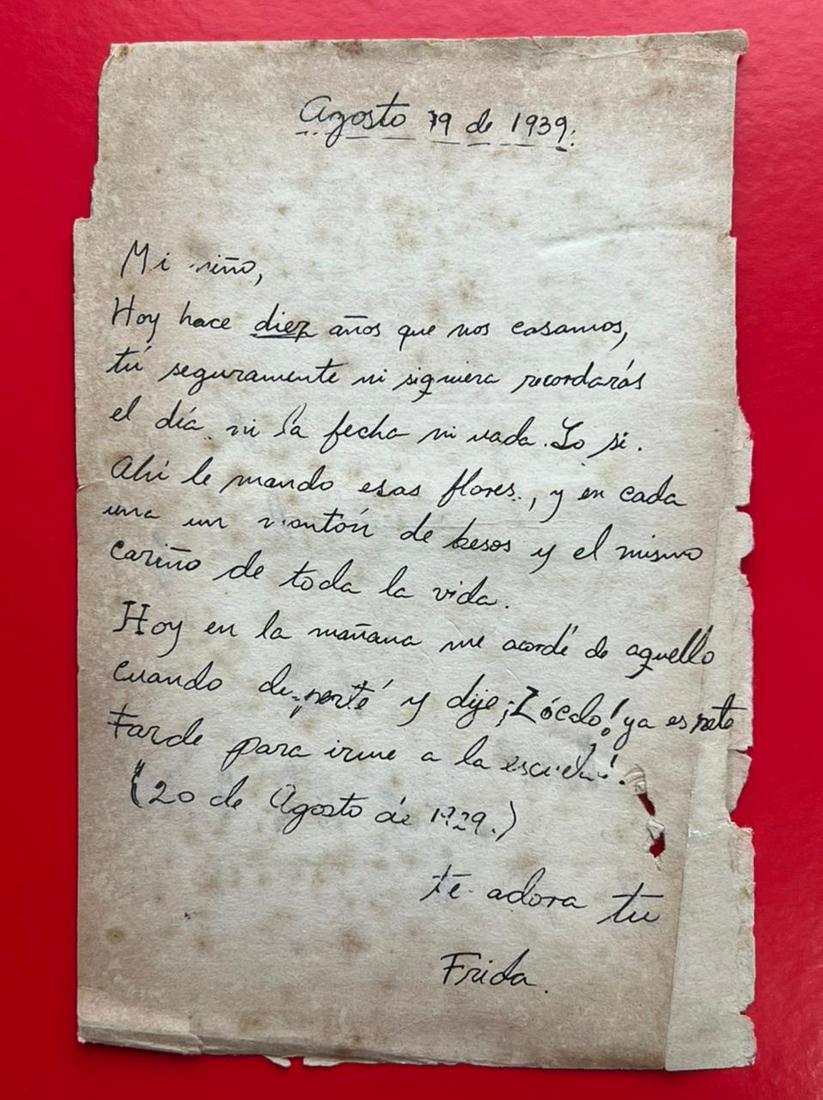 Agosto 19 de 1939.
Mi niño,
Hoy hace diez años que nos casamos,
tú seguramente ni siquiera recordarás
el día ni la fecha ni nada. Yo si.
Ahí le mando esas flores, y en cada
una un montón de besos y el mismo
cariño de toda la vida.
Hoy en la mañana me acordé de aquello
cuando desperté y dije ¡Zócalo! ya es rete
tarde para irme a la escuela!
(20 de Agosto de 1929.)
te adora tu
Frida.